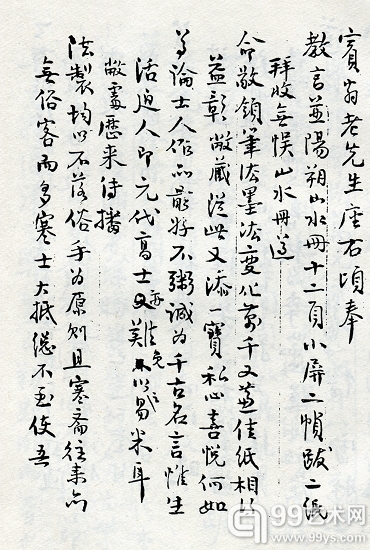 賓翁老先生座右頃奉
教言并陽朔山水冊十二頁小屏二幀跋二紙
拜收無悞山水冊遵
命敬領筆法墨法變化萬千又益佳紙相得
益彰敝藏從此又添一寶私心喜悅何如
等論士人作品最好不鬻誠為千古名言惟生
活迫人即元代高士又難免不以易米耳
敝處歷來待播
法製均以不落俗手為原則且寒齋往來尚
無俗客而多寒士大抵總不至使吾
99艺术网
www.99ys.com